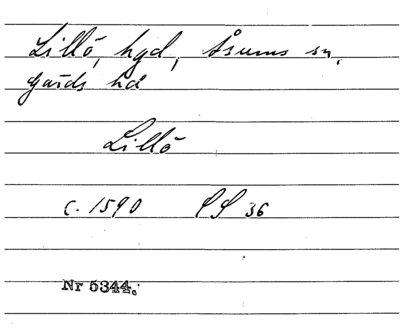 Lillö, hgd, Åsums sn,
Gärds hd
Lillö
c. 1590 PS 36
Nr 5344.